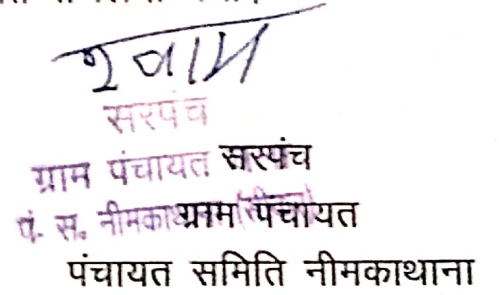 श्याम
सरपंच
ग्राम पंचायत सरपंच
पं. स. नीमकाथाना ग्राम पंचायत
पंचायत समिति नीमकाथाना